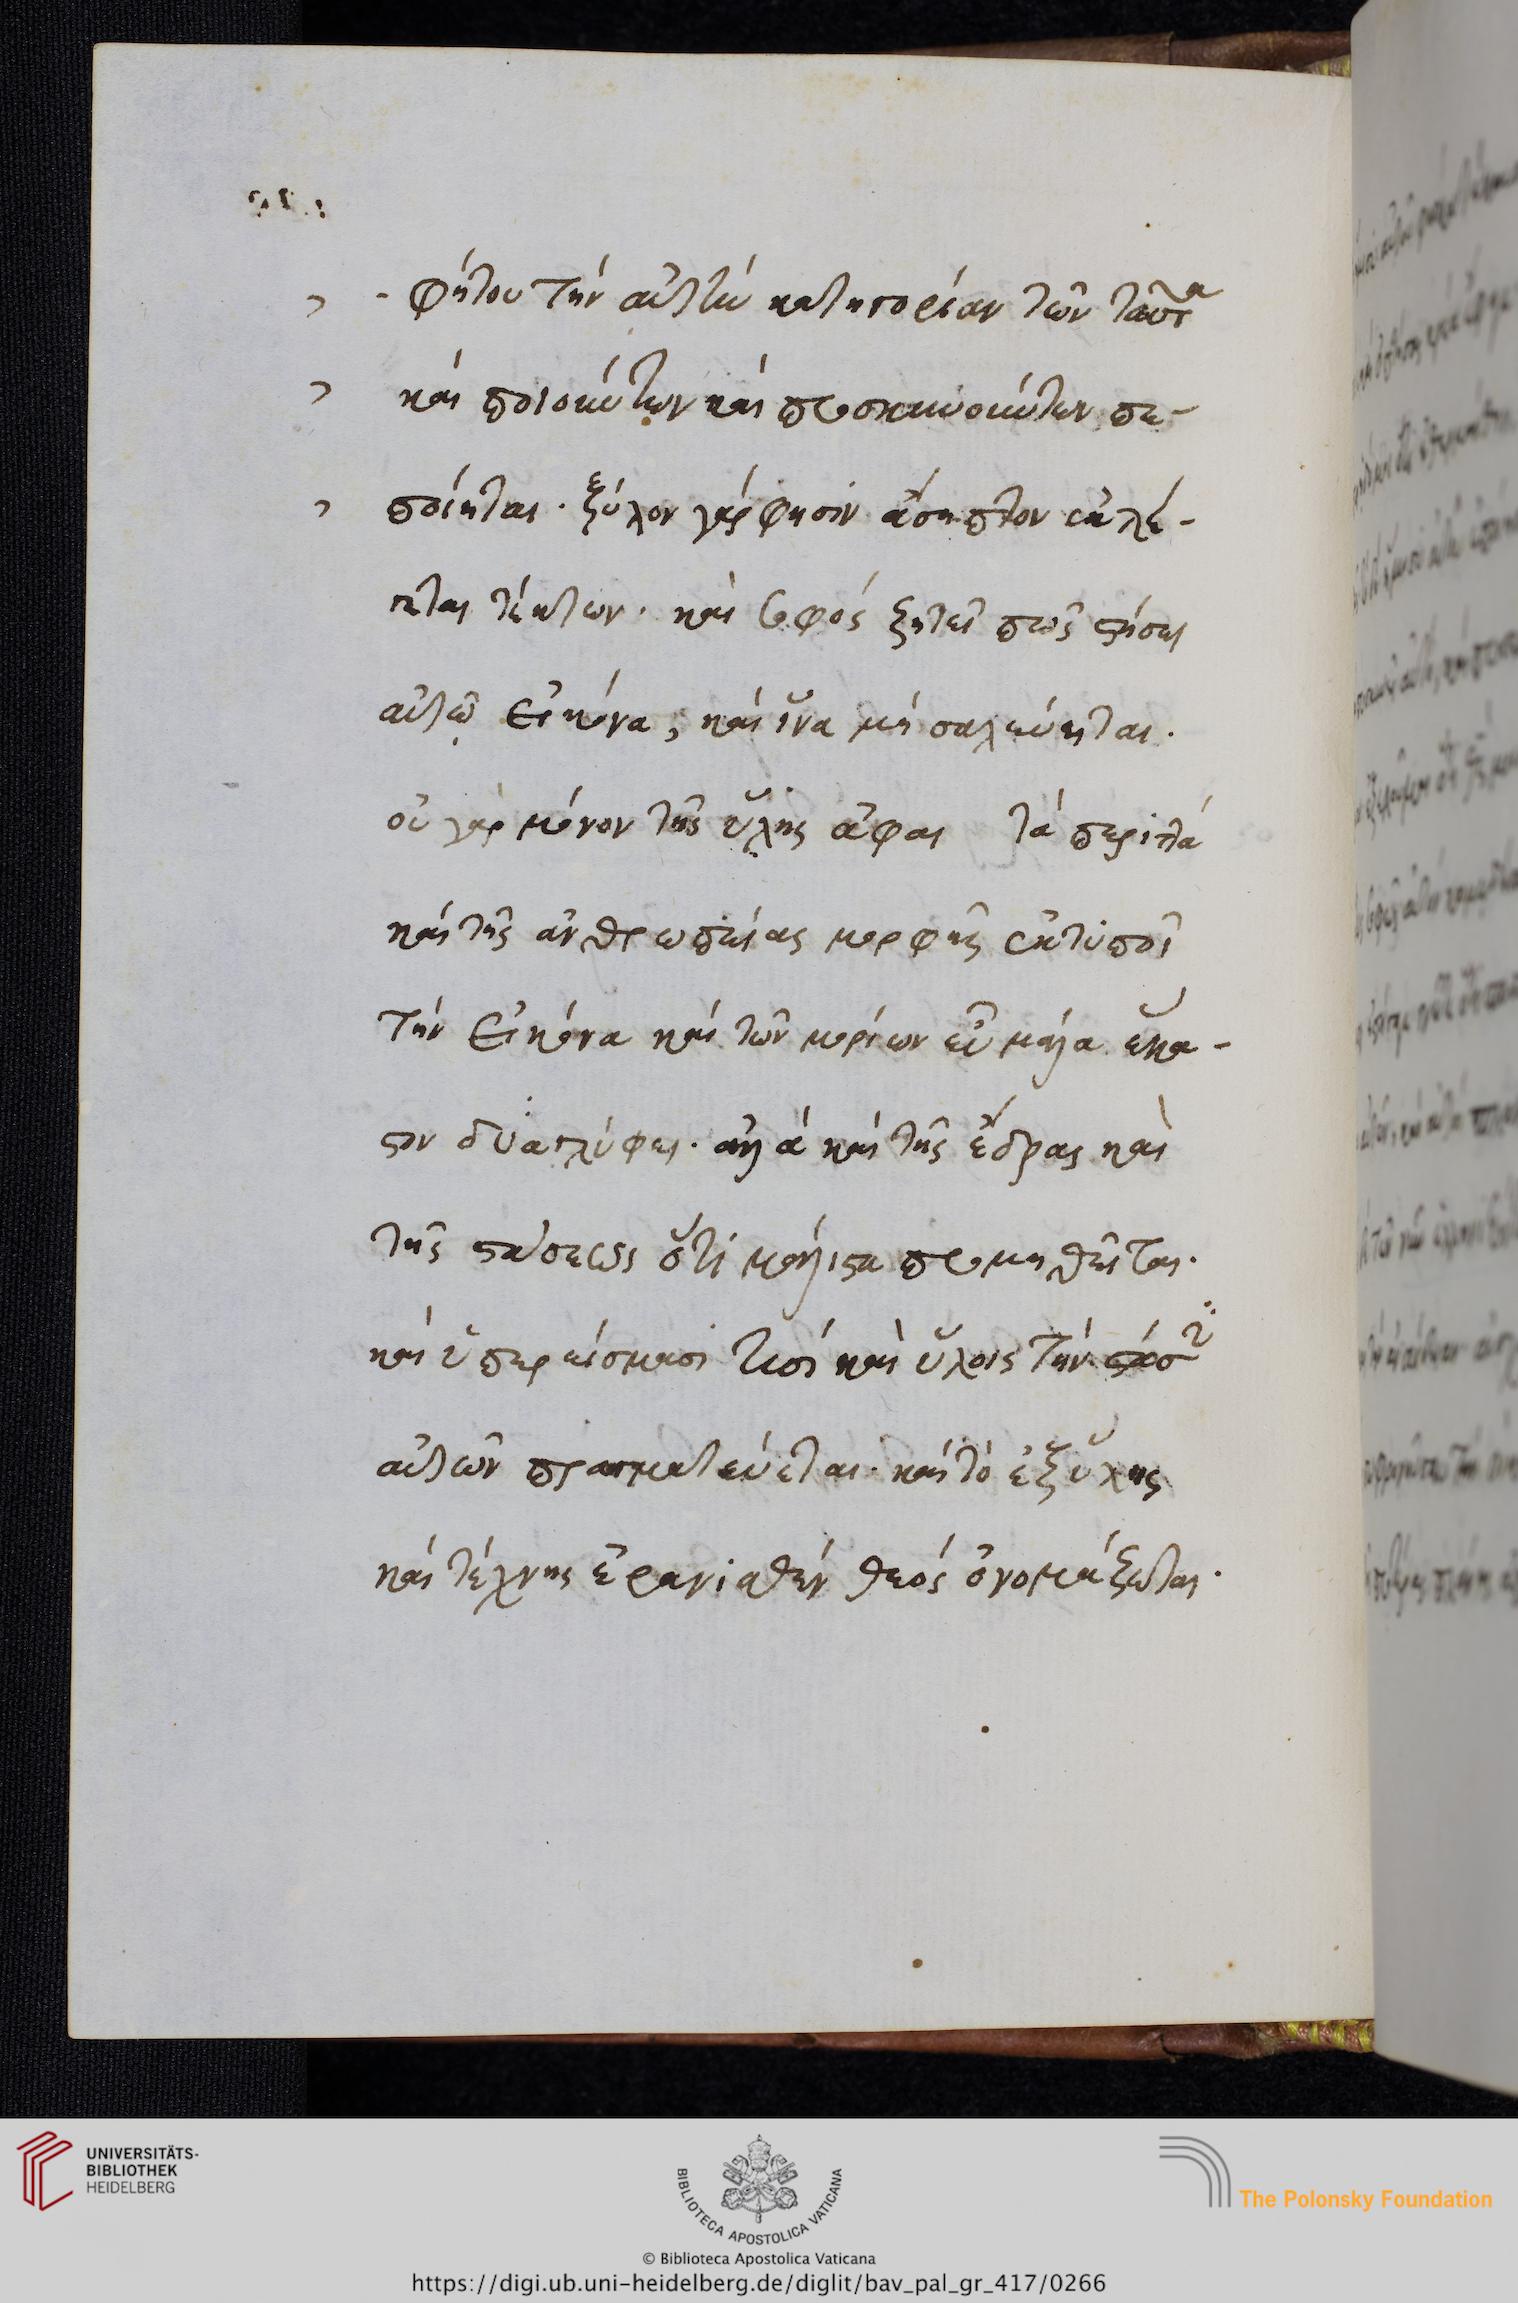 φήτου τὴν αὐτὴν κατηγορίαν τῶν ταῦτα
καὶ ποιούντων καὶ προσκυνούντων πε-
ποίηται. ξύλον γάρ φησιν ἄσηπτον ἐκλέ-
γεται τέκτων. καὶ σοφῶς ζητεῖ πῶς στήσει
αὐτῷ εἰκόνα, καὶ ἵνα μὴ σαλεύηται.
οὐ γὰρ μόνον τῆς ὕλης ἀφαι τὰ περιττὰ
καὶ τῆς ἀνθρωπείας μορφῆς ἐκτυποῖ
τὴν εἰκόνα καὶ τῶν μορίων εὖ μάλα ἕκα-
στον διαγλύφει. ἀλλὰ καὶ τῆς ἕδρας καὶ
τῆς στάσεως ὅτι μάλιστα προμηθεῖται.
καὶ ὑπερείσμασί τισι καὶ ὕλοις τὴν στάσιν
αὐτῶν πραγματεύεται. καὶ τὸ ἐξ ὕλης
καὶ τέχνης ἐρανισθὲν θεὸς ὀνομάζεται.
UNIVERSITÄTS-
BIBLIOTHEK
HEIDELBERG
BIBLIOTECA APOSTOLICA VATICANA
The Polonsky Foundation
© Biblioteca Apostolica Vaticana
https://digi.ub.uni-heidelberg.de/diglit/bav_pal_gr_417/0266